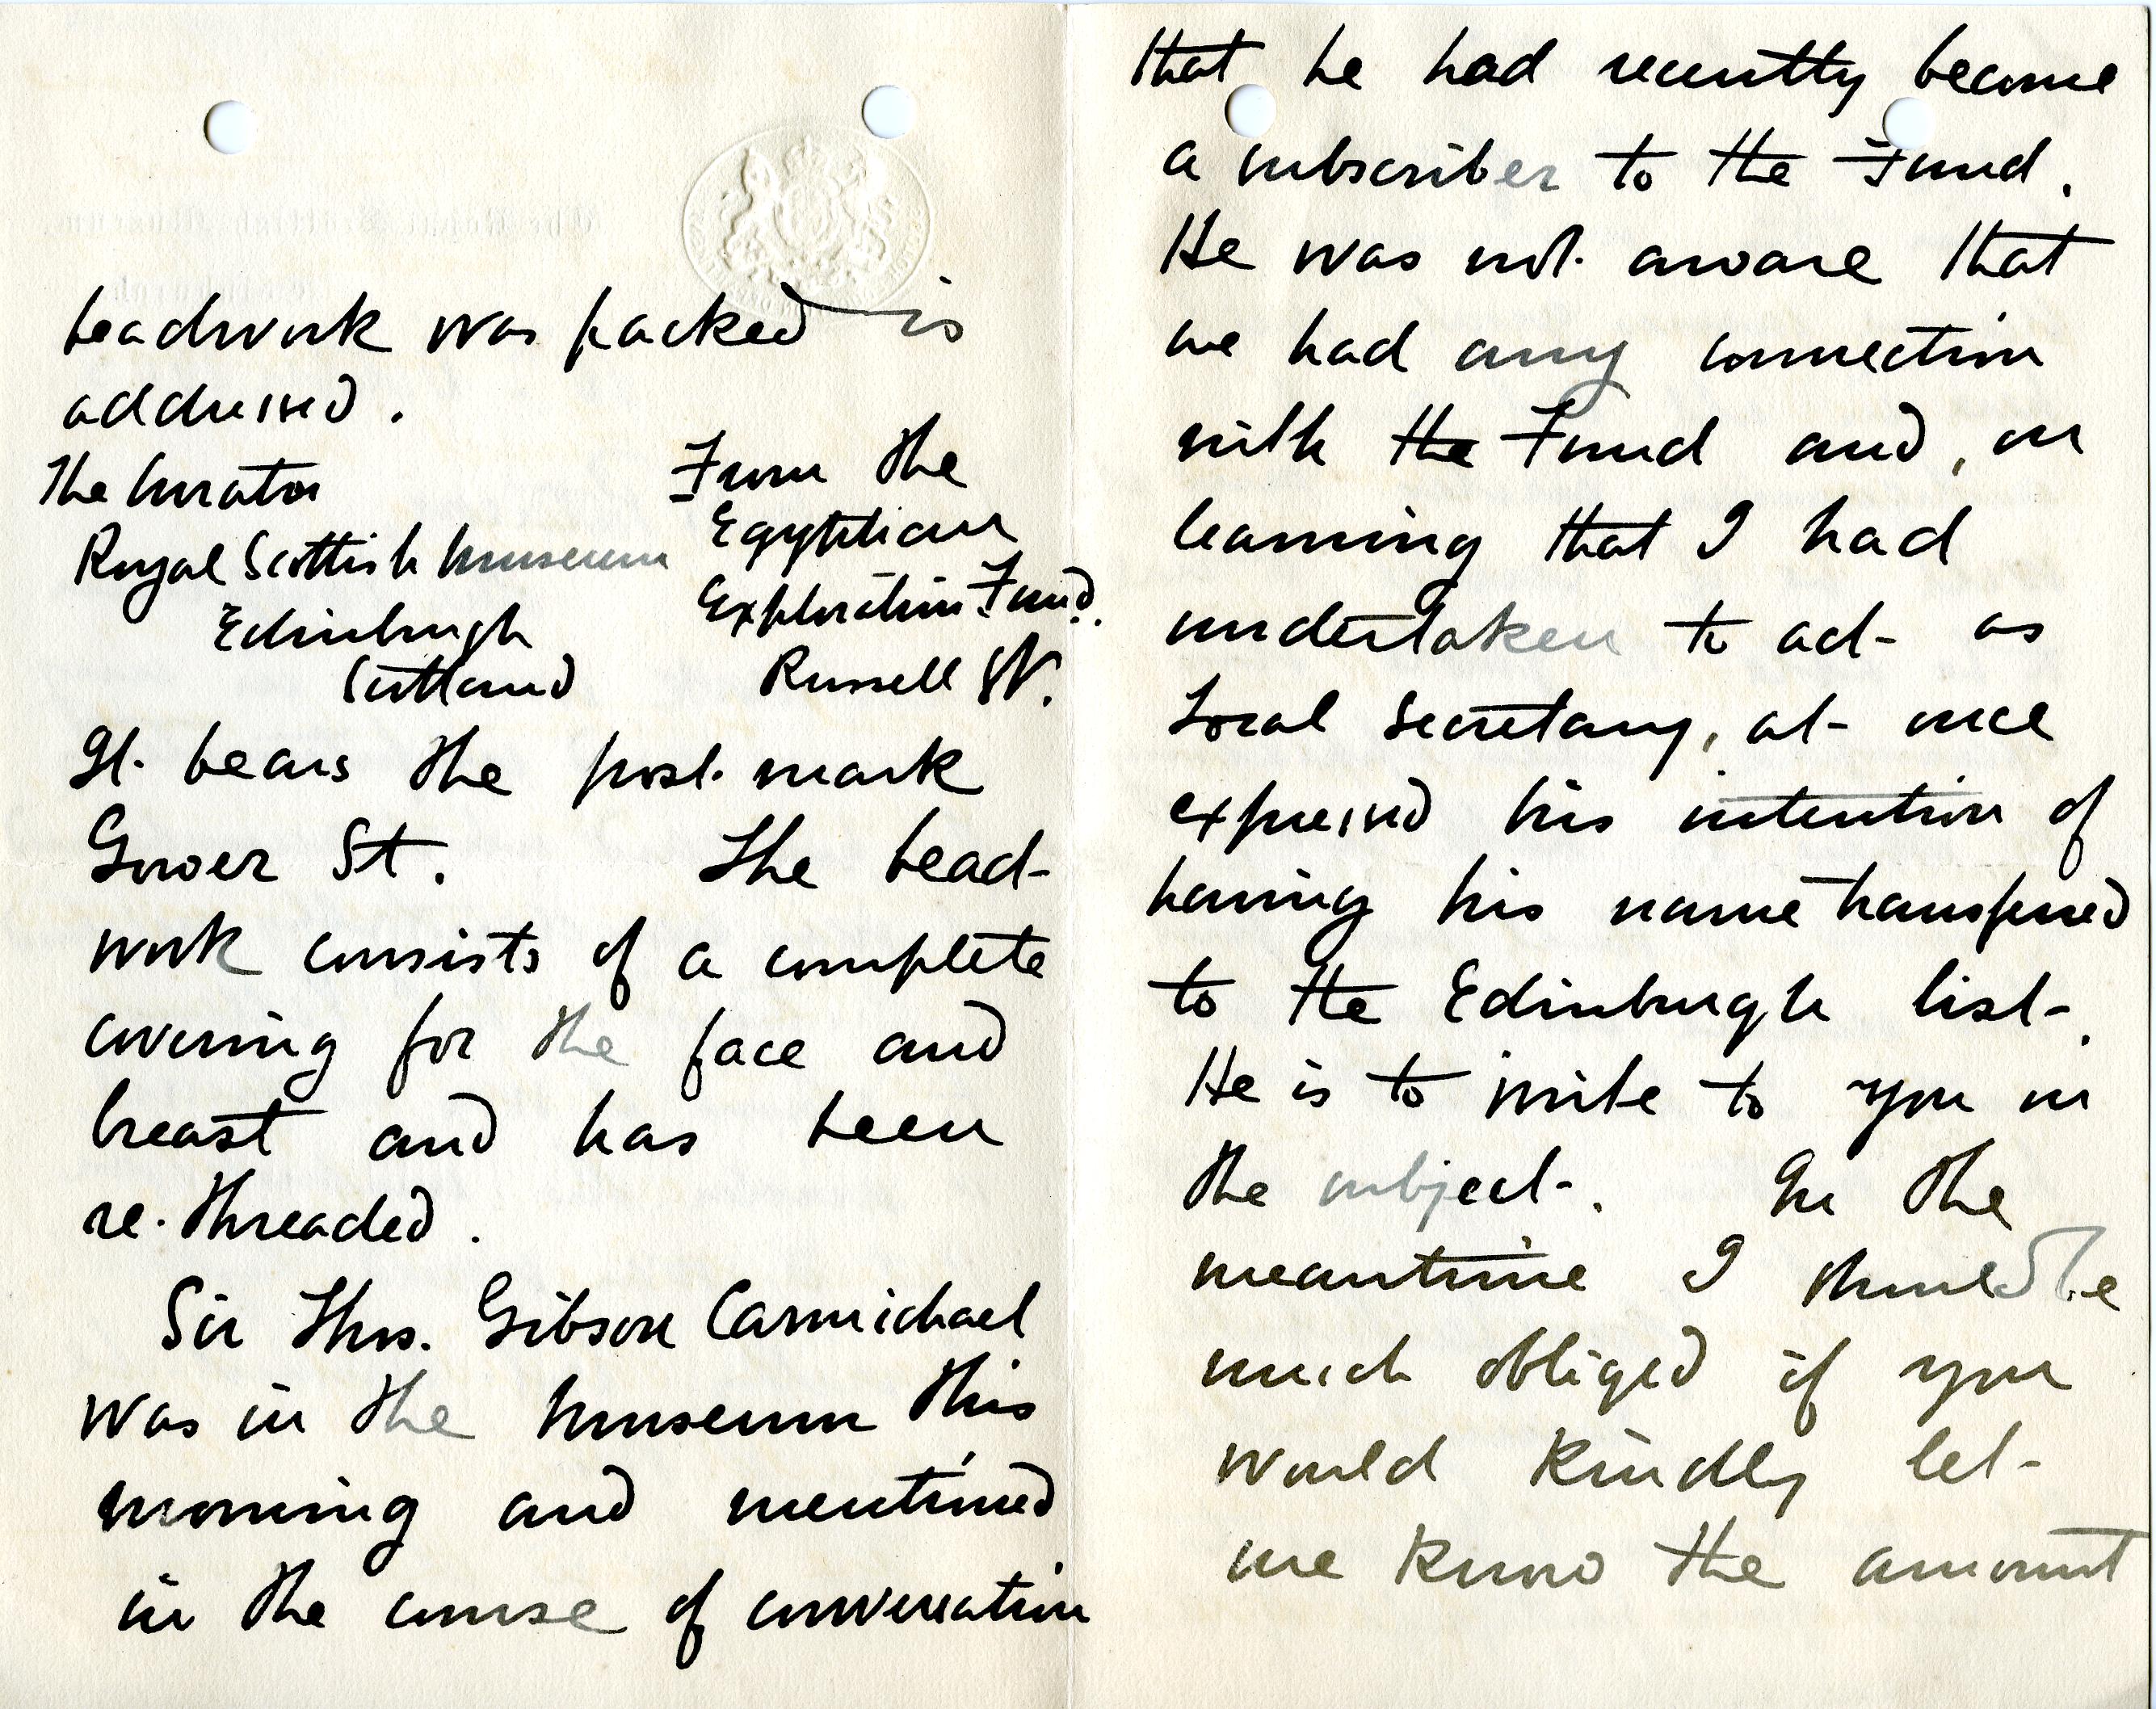 beadwork was packed is
addressed.
The Curator
Royal Scottish Museum
Edinburgh
Scotland
From the
Egyptian
Exploration Fund.
Russell St.
It bears the post-mark
Gower St. The bead-
work consists of a complete
covering for the face and
breast and has been
re-threaded.
Sir Thos. Gibson Carmichael
was in the Museum this
morning and mentioned
in the course of conversation
that he had recently become
a subscriber to the Fund.
He was not aware that
we had any connection
with the Fund and, on
learning that I had
undertaken to act as
Local Secretary, at once
expressed his intention of
having his name transferred
to the Edinburgh list.
He is to write to you on
the subject. In the
meantime I should be
much obliged if you
would kindly let
me know the amount